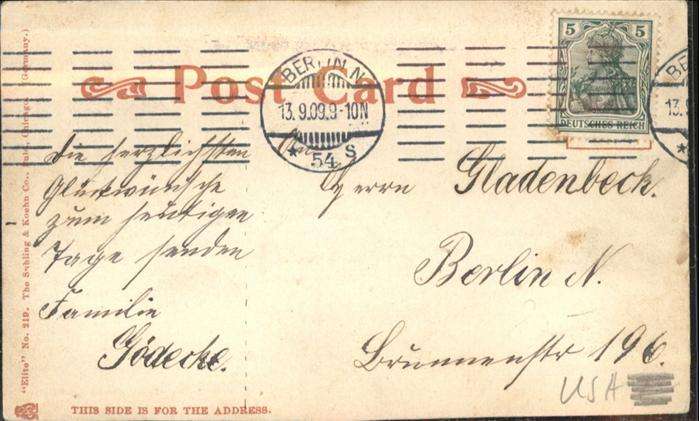 Post Card
5 5
DEUTSCHES REICH
BERLIN N.
13.9.09.9-10N
* 54 S
BE
13.
*
Die herzlichsten
Glückwünsche
zum heutigen
Tage senden
Familie
Gödecke.
Herrn Gladenbeck.
Berlin N.
Brunnenstr 196.
USA
"Elite" No. 219. The Schling & Koehn Co., Pub., Chicago. (Germany.)
THIS SIDE IS FOR THE ADDRESS.